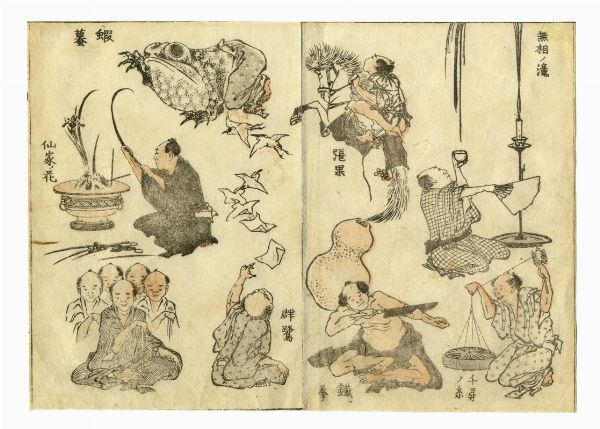 無相ノ瀧
張果
千尋
ノ糸
鐵
蝦
蟇
群鷺
仙家ノ花